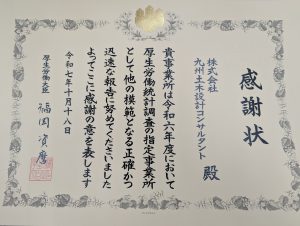 感謝状
株式会社
九州土木設計コンサルタント 殿
貴事業所は令和六年度において
厚生労働統計調査の指定事業所
として他の模範となる正確かつ
迅速な報告に努めてくださいました
よってここに感謝の意を表します
令和七年十月十八日
厚生労働大臣 福岡資麿